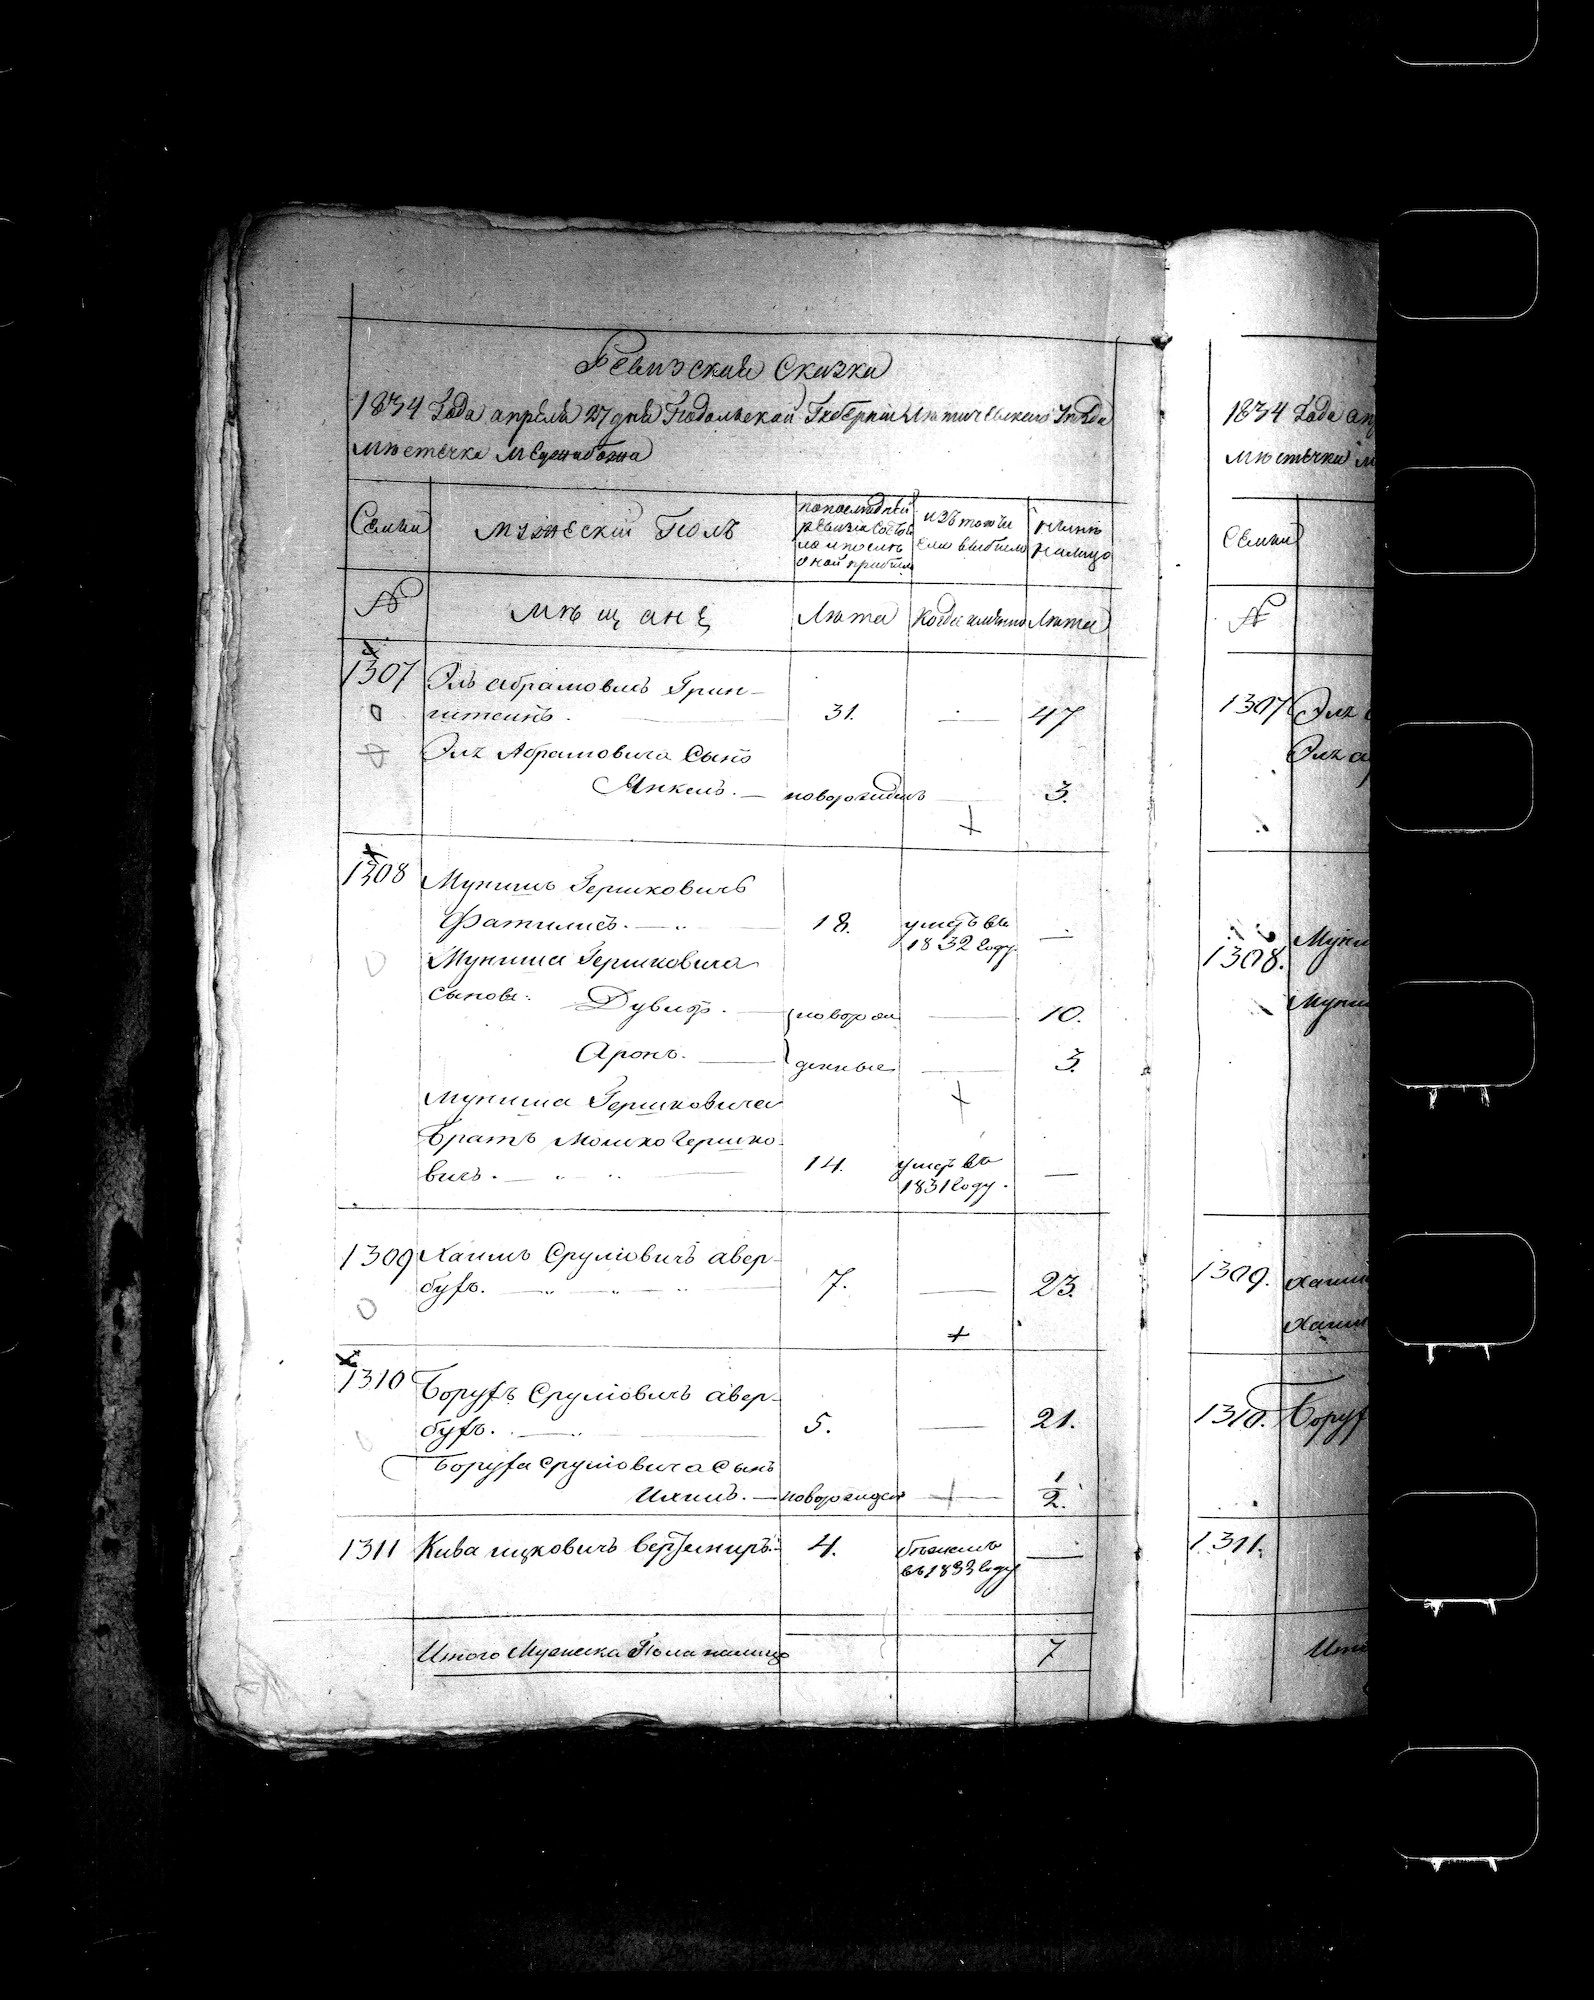 Ревизская Сказка
1834 Года апреля 27 дня Подольской Губернии Литичевскаго Уезда
мѣстечка Меджибожа
Семьи
мужеский Полъ
по последней
ревизии состоя
ло и после
оной прибыло
изъ того чи
сла выбыло
ныне
на лицо
№
мѣщане
Лѣта
когда имянно
Лѣта
1307
Эль абрамовичъ Грин-
штейнъ.
31.
47
Эль Абрамовича Сынъ
Янкель.
новорожден
3.
1308
Мунишъ Гершковичъ
18.
умеръ въ
1832 году.
Муниша Гершковича
сыновья:
Дувидъ.
новорож
10.
Аронъ.
денные
3.
Муниша Гершковича
Братъ Мошко Гершко-
вичъ.
14.
умеръ въ
1831 году.
1309
Хаимъ Сруліовичъ авер-
бухъ.
7.
23.
1310
Борухъ Сруліовичъ авер-
бухъ.
5.
21.
Боруха Сруліовича Сынъ
новорожден
1/2.
1311
Кива ицковичъ
4.
бѣжалъ
въ 1833 году
Итого Мужеска Пола налицо
7
1834 Года ап
мѣстечка м
Семьи
№
1307
Эль
Эль а
1308.
Муни
Муни
1309.
Хаим
Хаим
1310.
Борух
1311.
Ито